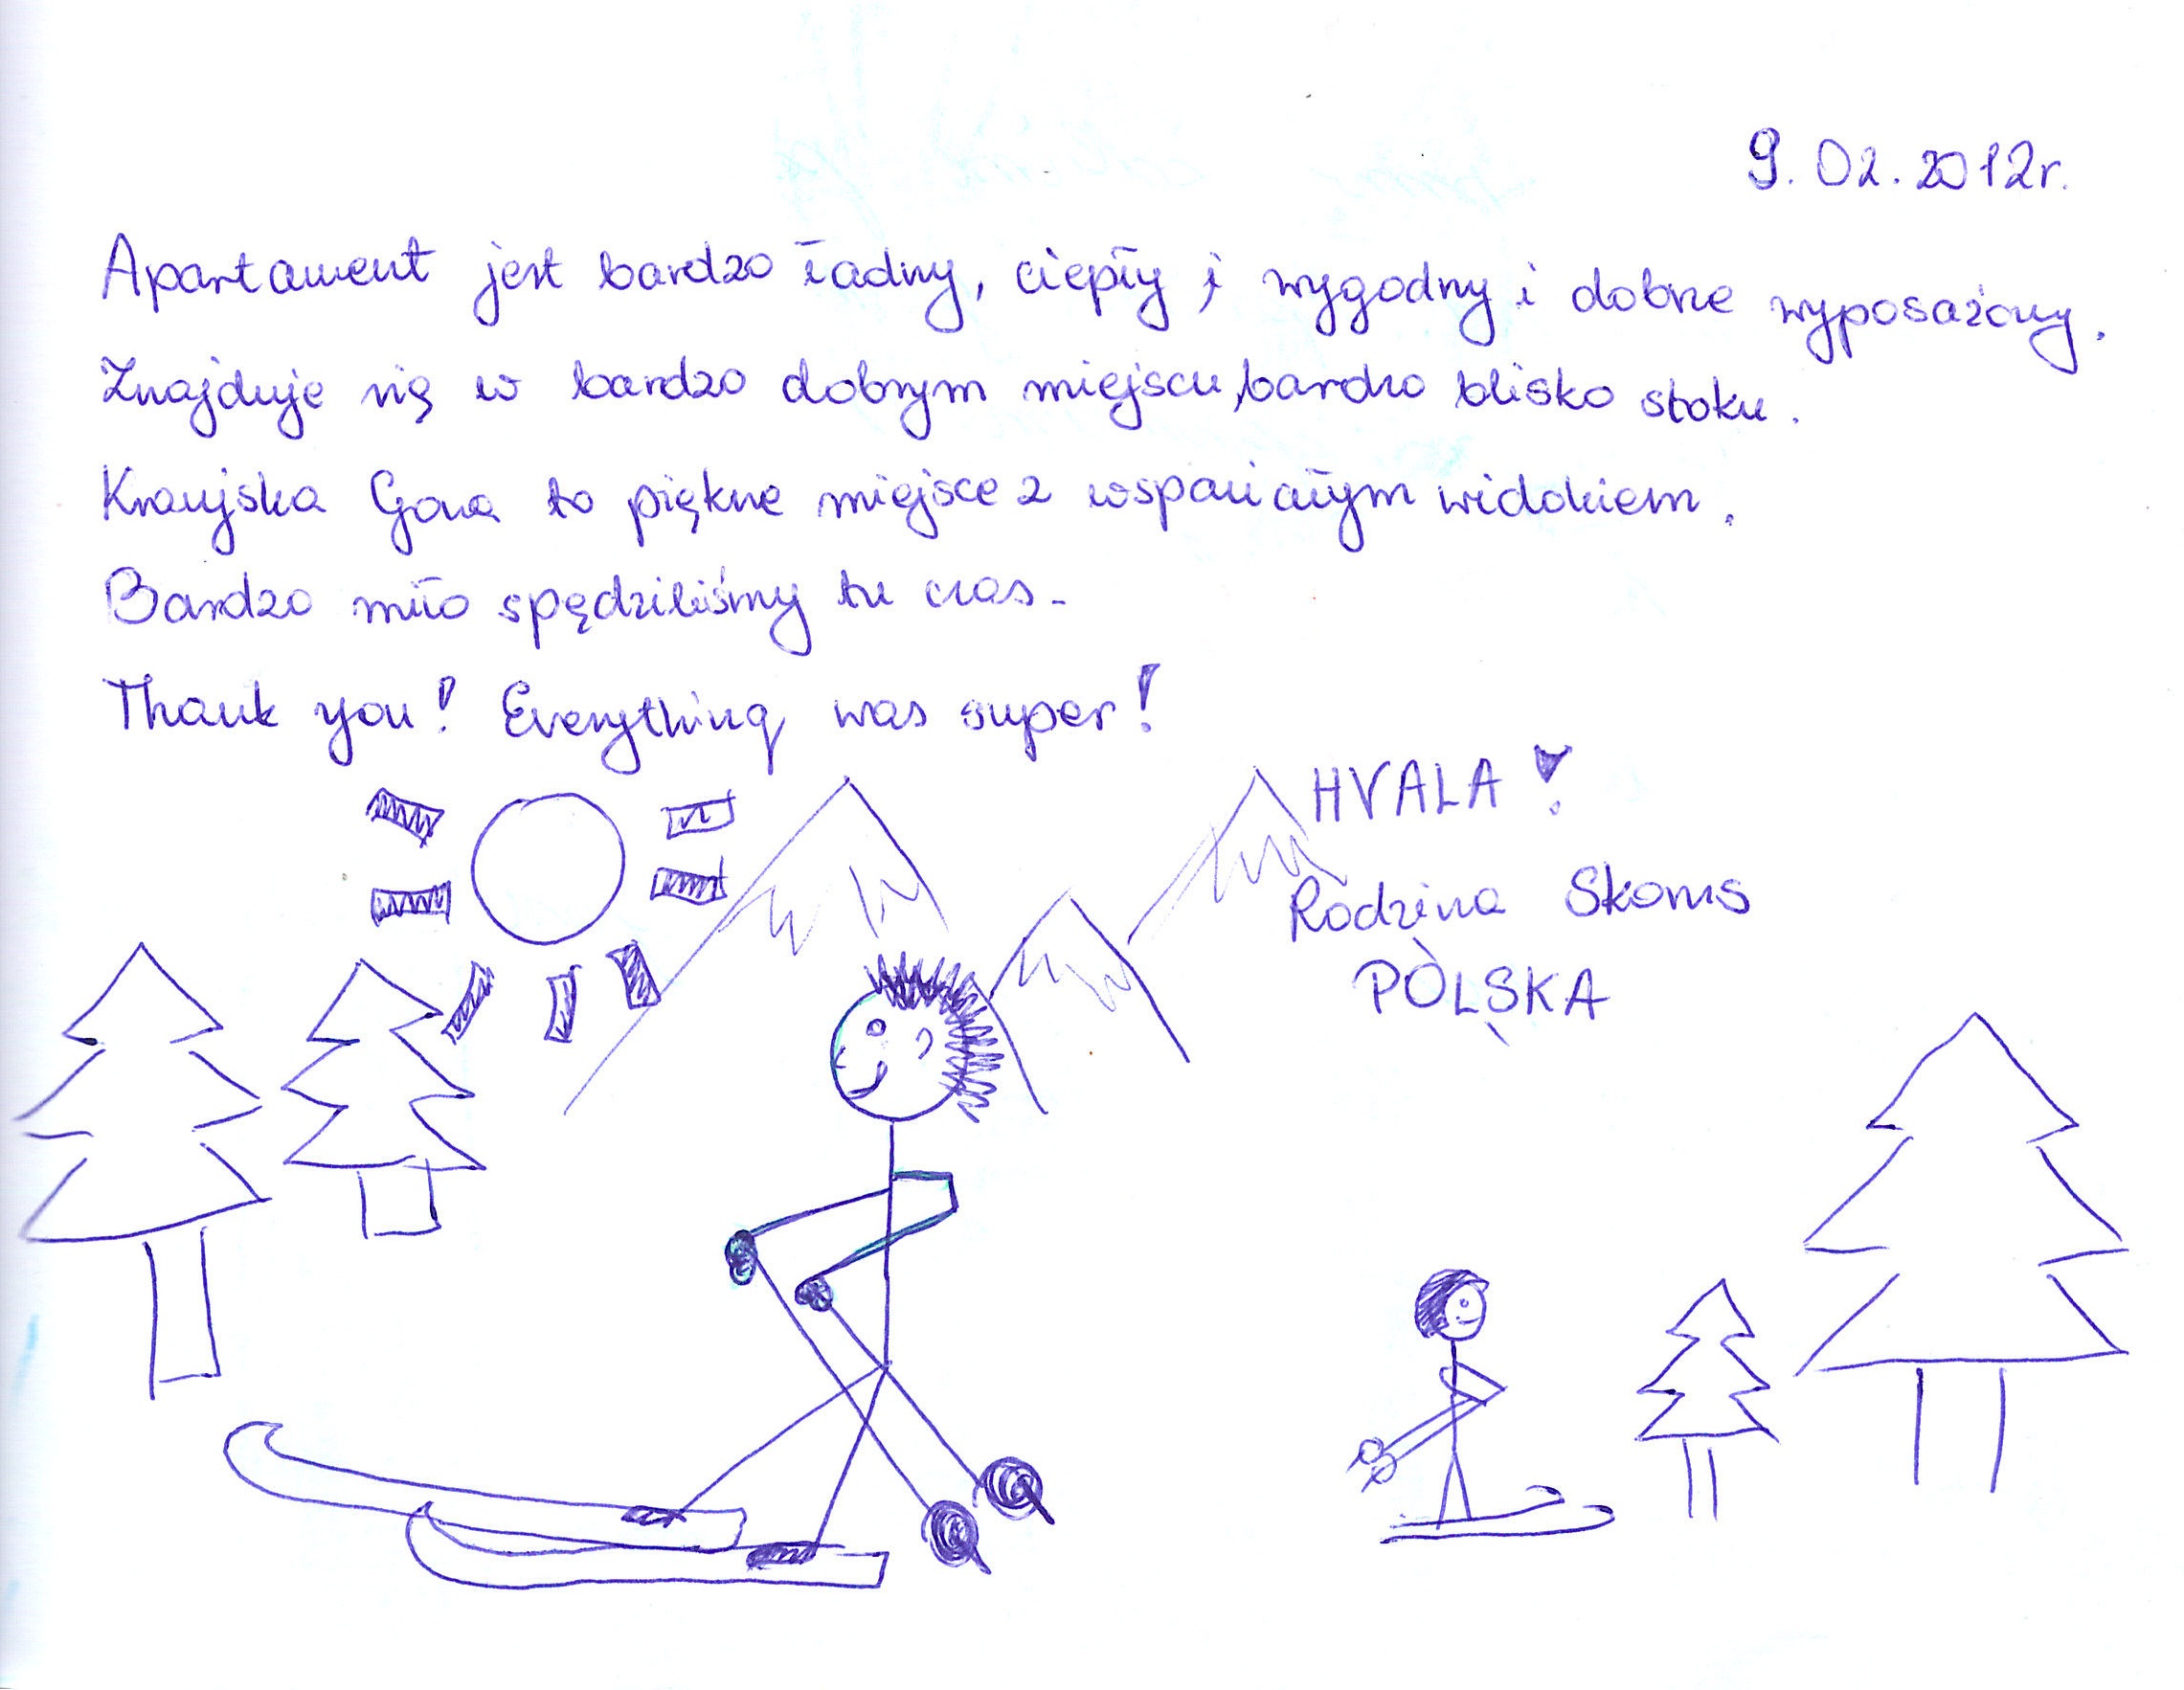 9. 02. 2012r.
Apartament jest bardzo ładny, ciepły, i wygodny i dobrze wyposażony.
Znajduje się w bardzo dobrym miejscu, bardzo blisko stoku.
Kranjska Gora to piękne miejsce z wspaniałym widokiem.
Bardzo miło spędziliśmy tu czas.
Thank you! Everything was super!
HVALA!
Rodzina
POLSKA